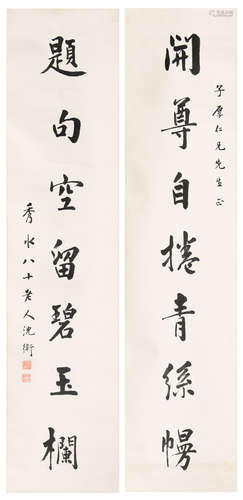 開尊自捲青絲幔
子原仁兄先生正
題句空留碧玉欄
秀水八十老人沈衛